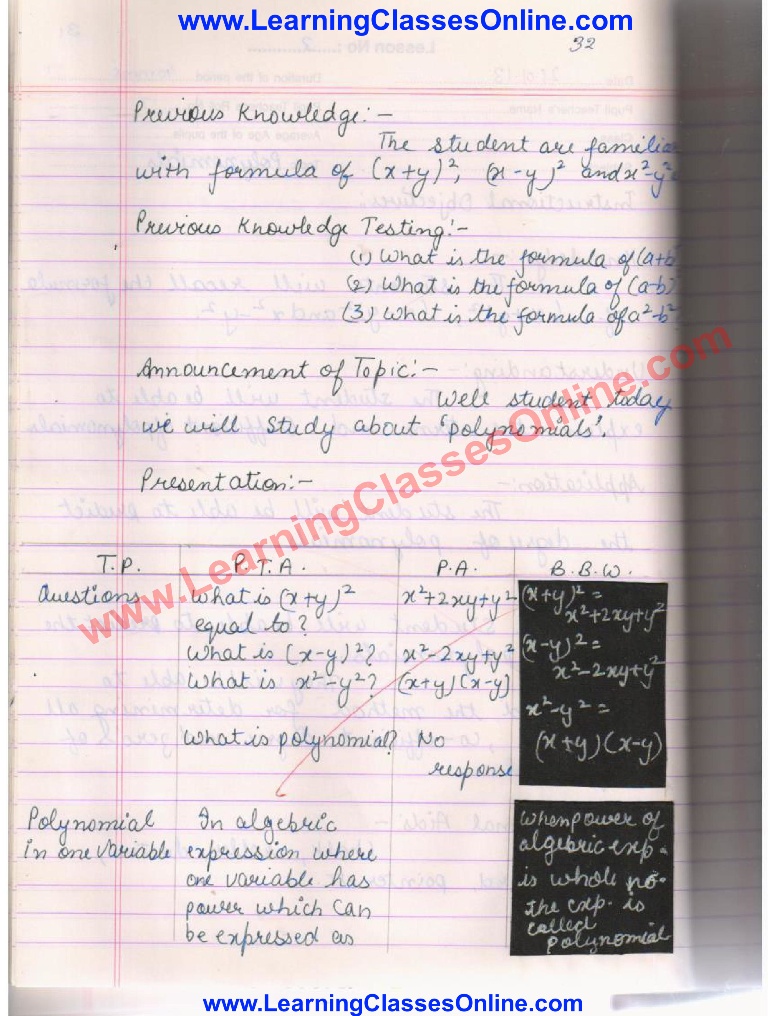 www.LearningClassesOnline.com
32
Previous Knowledge:-
The student are familiar
with formula of (x+y)², (x-y)² and x²-y²
Previous Knowledge Testing:-
(1) What is the formula of (a+b)
(2) What is the formula of (a-b)
(3) What is the formula of a²-b²
Announcement of Topic:-
Well student today
we will study about 'polynomials'.
Presentation:-
www.LearningClassesOnline.com
T.P. P.T.A. P.A. B.B.W.
Questions What is (x+y)² x²+2xy+y² (x+y)² =
equal to? x²+2xy+y²
What is (x-y)²? x²-2xy+y² (x-y)² =
What is x²-y²? (x+y)(x-y) x²-2xy+y²
x²-y² =
What is polynomial? No (x+y)(x-y)
response
Polynomial In algebric When power of
in one variable expression where algebric exp.
one variable has is whole no.
power which can the exp. is
be expressed as called
polynomial
www.LearningClassesOnline.com